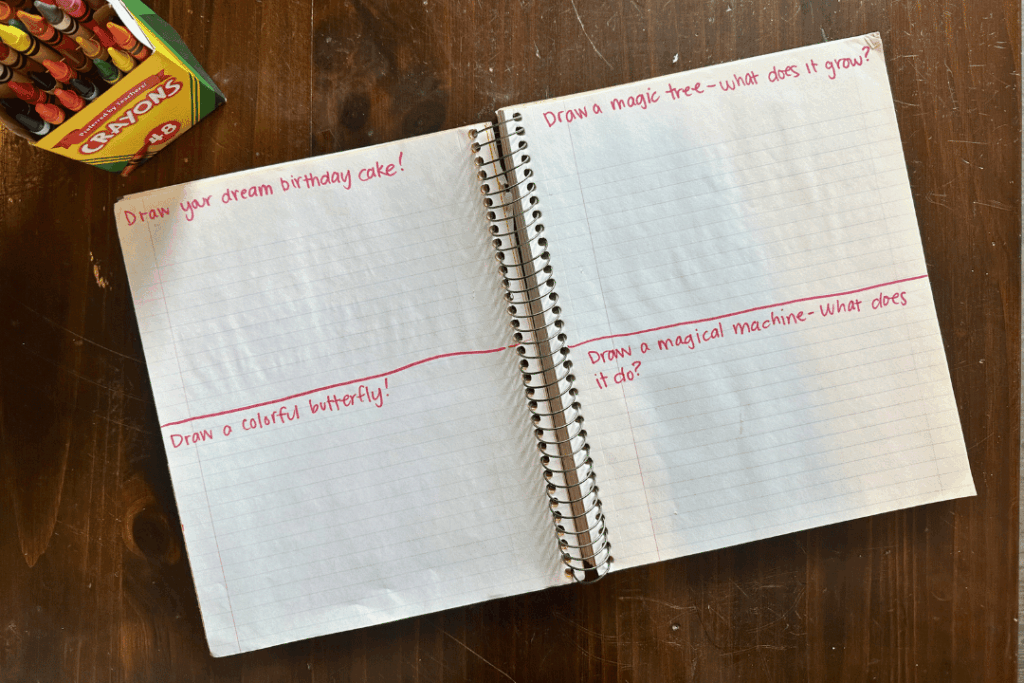 Preferred by teachers!
CRAYONS
48
Draw your dream birthday cake!
Draw a colorful butterfly!
Draw a magic tree - What does it grow?
Draw a magical machine - What does
it do?